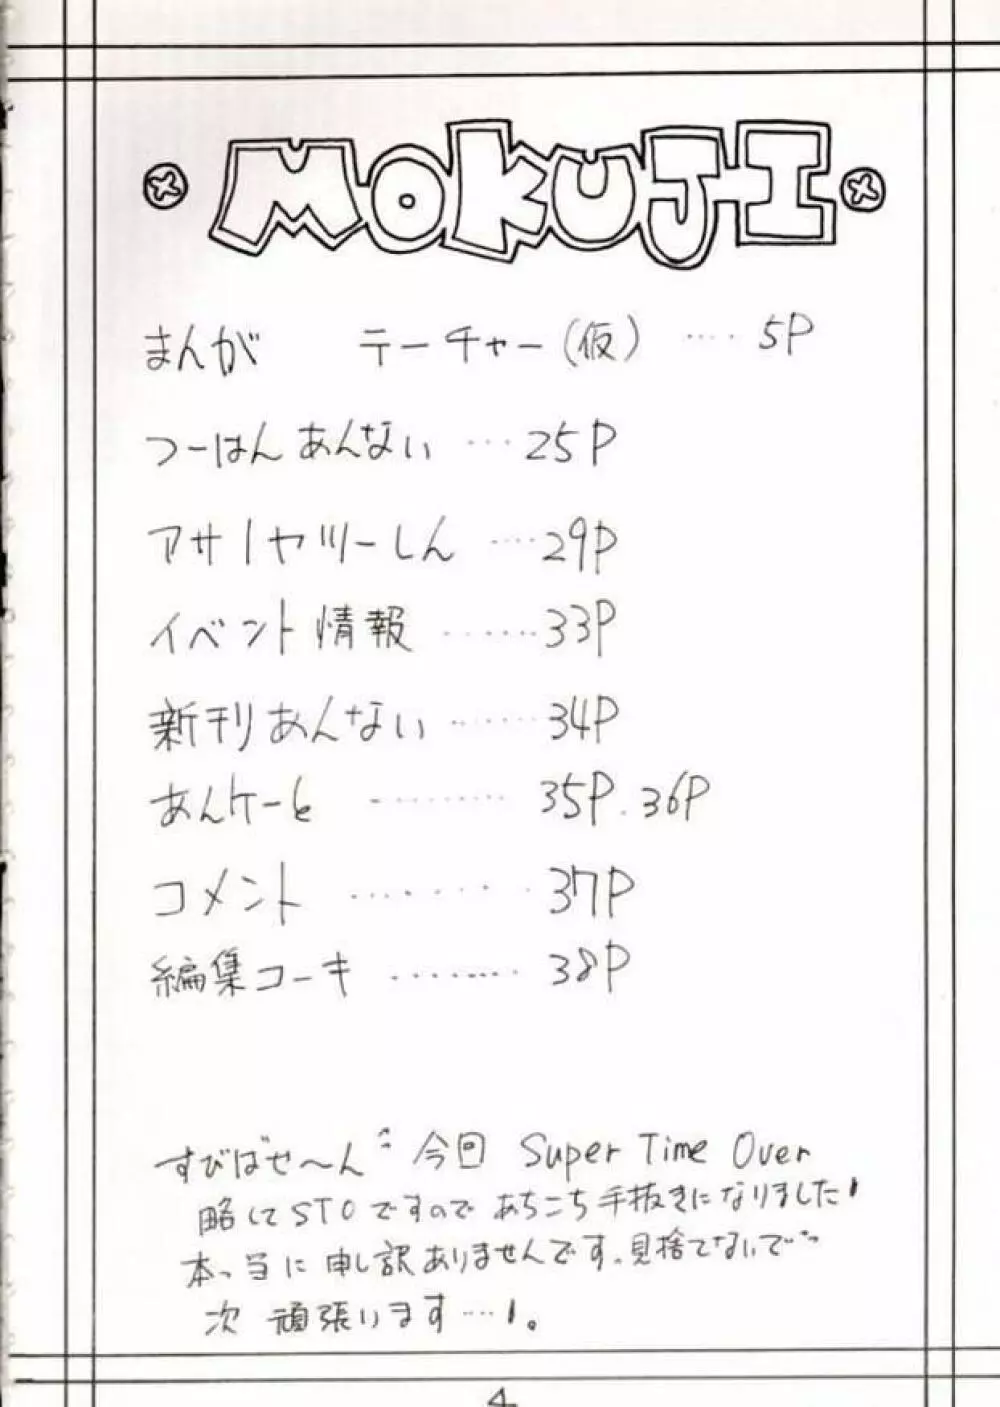 MOKUJI
まんが テーチャー(仮) ････ 5P
つーはんあんない ･･･ 25P
アサノヤツーしん ････ 29P
イベント情報 ･･･････ 33P
新刊あんない ･･･････ 34P
あんケーと ･････････ 35P.36P
コメント ････････ 37P
編集コーキ ････････ 38P
すびばせ〜ん゛ 今回 Super Time Over
略してSTOですのであちこち手抜きになりました!
本っ当に申し訳ありませんです。見捨てないで゛っ
次 頑張ります ････!。
4